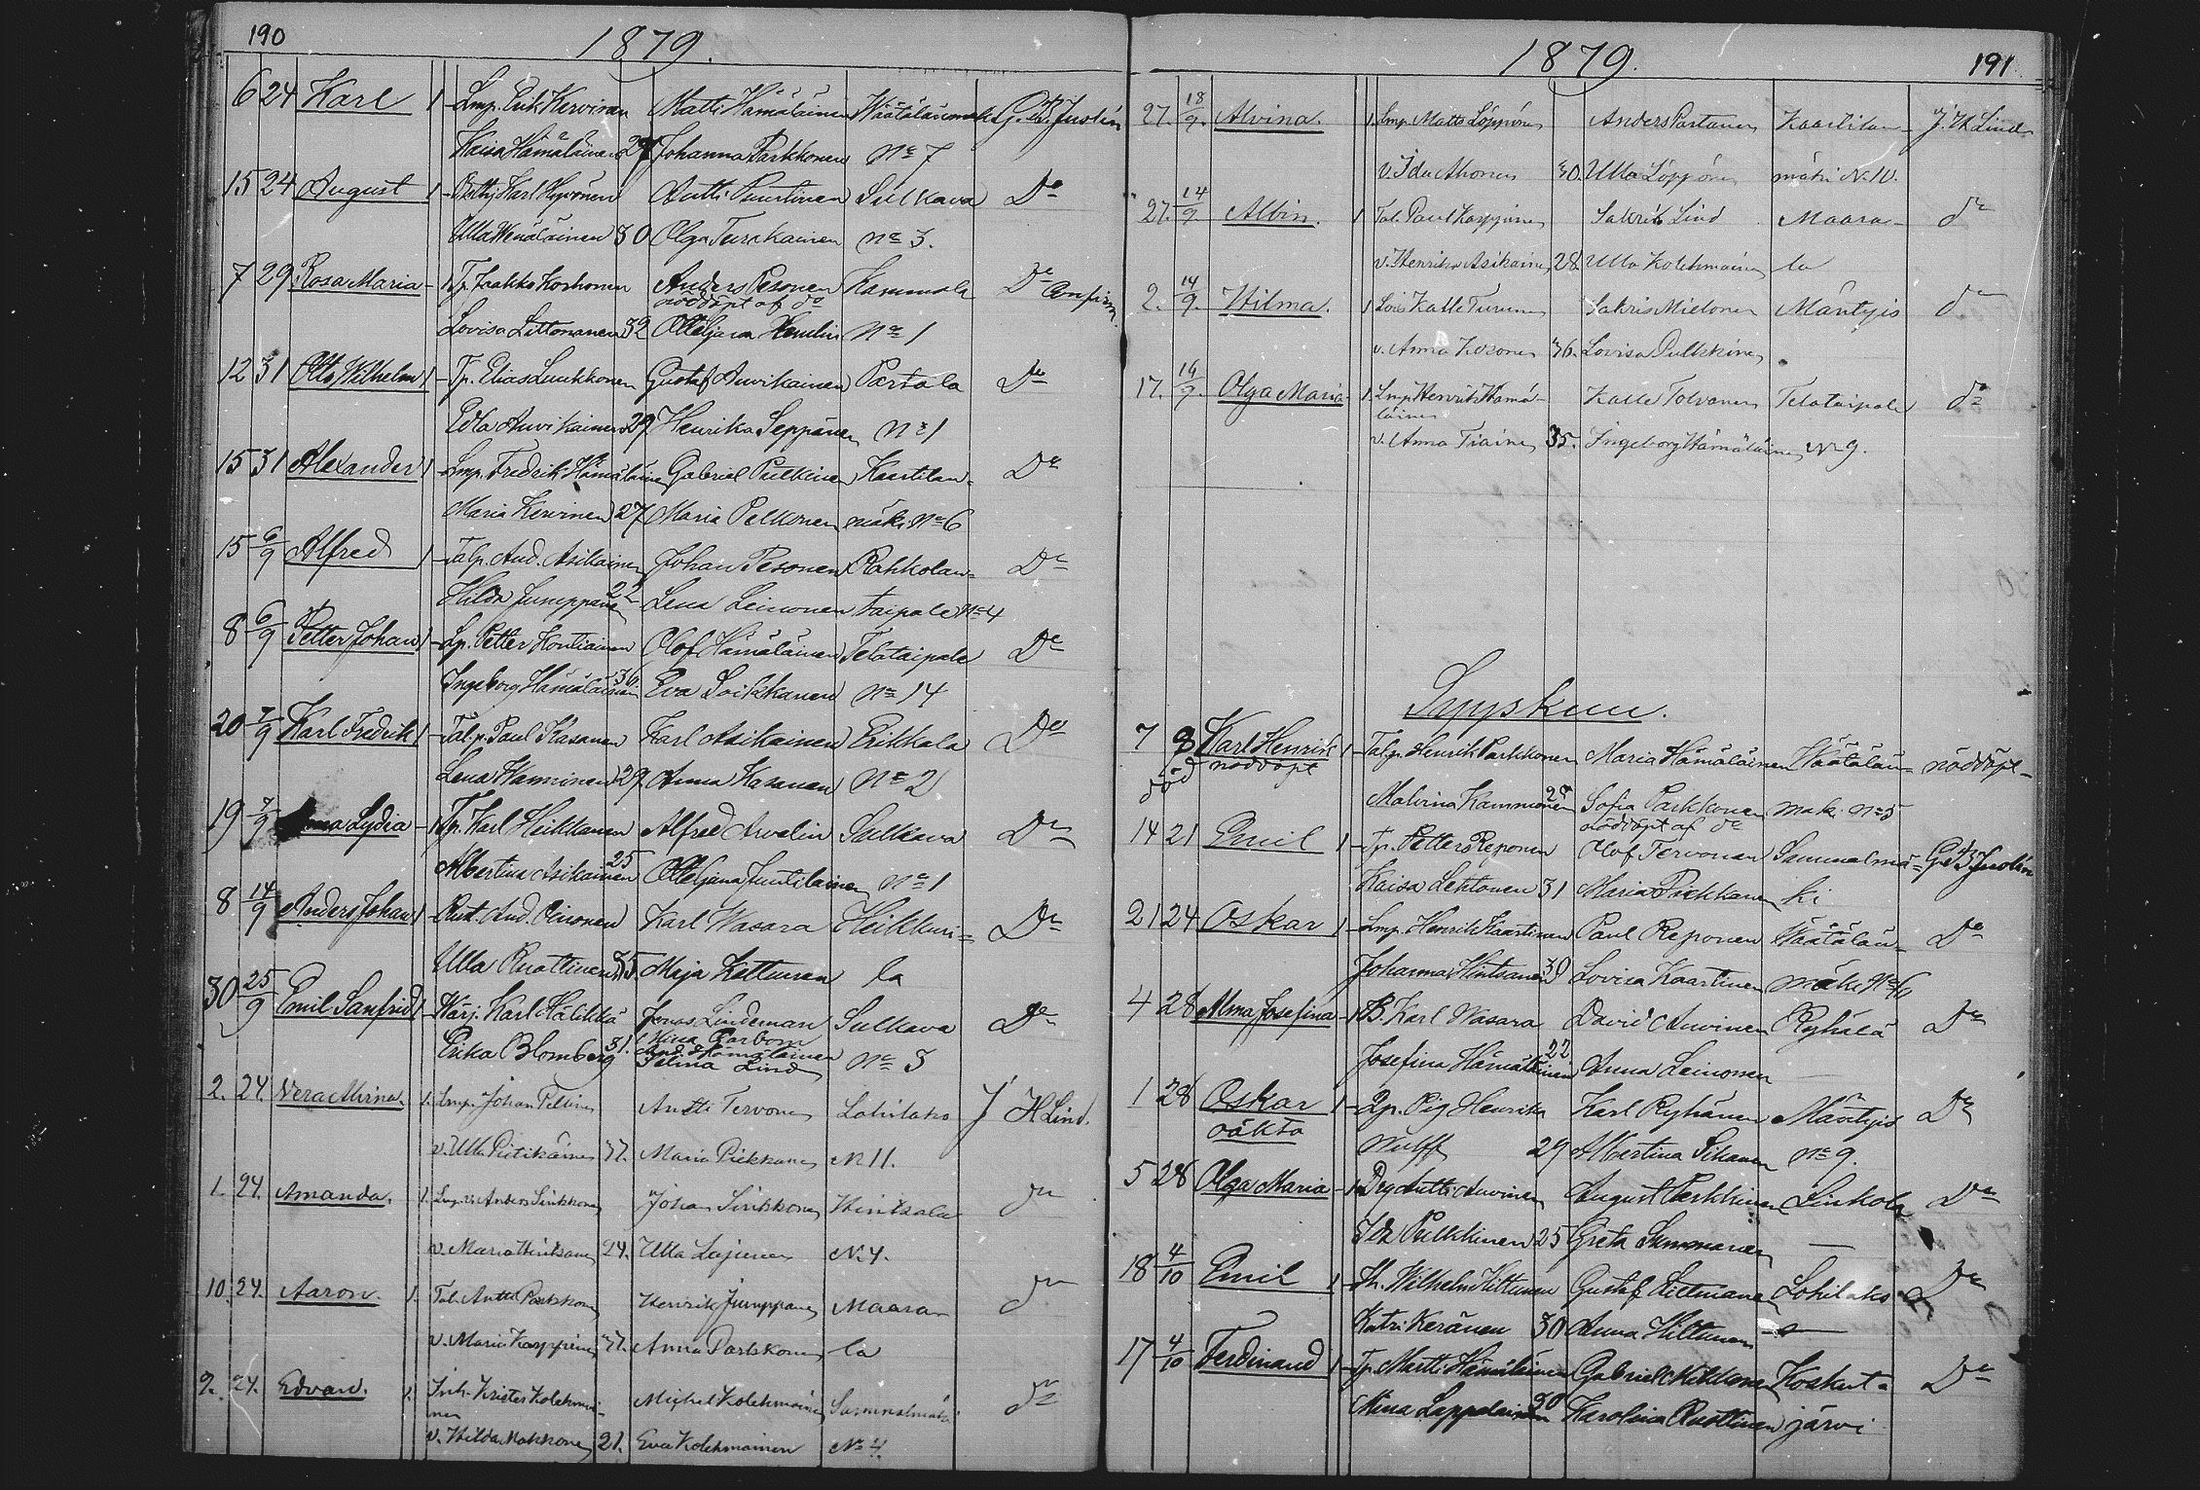 190
1879.
6 24 Karl 1 Lmp. Erik Kervinen Matti Hämäläinen Väätälänmäki G. B. Juselin
Kaisa Hämäläinen 27 Johanna Parkkonen No 7
15 24 August 1 Karl Hyvönen Antti Puustinen Sulkava Do
Ulla Wenäläinen 30 Olga Turakainen No 3.
7 29 Rosa Maria 1 Tp. Jaakko Korhonen Anders Pesonen Kammola Do Confirm.
nöddöpt af do
Lovisa Littonanen 32 Otteljana No 1
12 31 Otto Wilhelm 1 Tp. Elias Luukkonen Gustaf Auvikainen Partala Do
Edla Auvikainen 29 Henrika Seppänen No 1
15 31 Alexander 1 Lmp. Fredrik Hämäläinen Gabriel Pulkinen Kaartilan- Do
Maria Kervinen 27 Maria Pelkonen mäki No 6
15 6/9 Alfred 1 Talp. And. Asikainen Johan Pesonen Rahkolan- Do
Hilda Jumppanen 22 Lena Leinonen taipale No 4
8 6/9 Petter Johan 1 Lp. Petter Kontiainen Olof Hämäläinen Telataipale Do
Ingeborg Hämäläinen 36 Eva Soikkanen No 14
20 7/9 Karl Fredrik 1 Talp. Paul Kasanen Karl Asikainen Erikkala Do
Lena Hanninen 29 Anna Kasanen No 2
19 7/9 Lydia 1 Tp. Karl Heikkanen Alfred Arvelin Sulkava Do
Albertina Asikainen 25 Otteljana Juutilainen No 1
8 14/9 Anders Johan 1 Rust. And. Karl Wasara Heikkuri= Do
Ulla Ruottinen 35 Maja Kettunen la
30 25/9 Emil Sanfrid 1 Karl Hälikkä Jonas Lindeman Sulkava Do
Mina
And. Hämäläinen
Erika Blomberg 31. Selma Lind No 3
2. 24. Vera Mirna. 1. Lmp. Johan Antti Tervonen Lohilaks J H Lind.
v. Ulla Pietikäinen 37. Maria Pickkanen N 11.
1. 24. Amanda. 1. Lmp. Anders Sinkkonen Johan Sinkkonen Hintsala do
v. Maria Hintsanen 24. Ulla Lajunen N. 4.
10. 24. Aaron. 1. Tal. Antti Parkkonen Henrik Jumppanen Maara- do
v. Maria Karppinen 37. Anna Parkkonen la
9. 24. Edvard. 1. Inh. Krister Kolehmai- Michel Kolehmainen Sammalmäki do
nen
v. Hilda Makkonen 21. Eva Kolehmainen No 4.
1879.
191
27. 18/9. Alvina. 1. Lmp. Matts Löppönen Anders Partanen Kaartilan- J. H Lind
v. Ida Ahonen 30. Ulla Löppönen mäki N. 10.
27. 14/9 Albin. 1 Tal. Paul Karppinen Sakris Lind Maara- do
v. Henrika Asikainen 28. Ulla Kolehmainen la
2. 14/9. Hilma. 1 Lois Kalle Turunen Sakris Mielonen Mäntyis do
v. Anna Ikosonen 36. Lovisa Pulkkinen
17. 14/9. Olga Maria 1. Lmp. Henrik Hämä- Kalle Tolvanen Telataipale do
läinen
v. Anna Tiainen 35. Ingeborg Hämäläinen N 9.
7 Karl Henrik 1 Talp. Henrik Parkkonen Maria Hämäläinen Väätälän- nöddöpt
död nöddöpt
Malvina Kammonen Sofia Parkkonen mäki No 5
nöddöpt af do
14 21 Emil 1 Tp. Petter Reponen Olof Tervonen Sammalmä- G. B Juselin
Kaisa Lehtonen 31 Maria Pickkanen ki
21 24 Oskar 1 Lmp. Henrik Kaartinen Paul Reponen Väätälän- Do
Johanna Hintsanen 39 Lovisa Kaartinen mäki No 10
4 28 Alma Josefina 1 B. Karl Wasara David Auvinen Ryhälä Do
Josefina Hämäläinen 22 Anna Leinonen
1 28 Oskar 1 Qp. Pig Henrika Karl Ryhänen Mäntyis Do
oäkta Wulff 29 Albertina Sihanen No 9.
5 28 Olga Maria 1 Antti Auvinen August Pulkkinen Linkola Do
Ida Pulkkinen 25 Greta Summanen
18 4/10 Emil 1 Wilhelm Hiltunen Gustaf Lohilaks Do
Katri Keränen 30 Anna Hiltunen
17 4/10 Ferdinand 1 Tp. Martti Hämäläinen Gabriel Koskut= Do
Mina Lappalainen 30 Karolina Ruottinen järvi